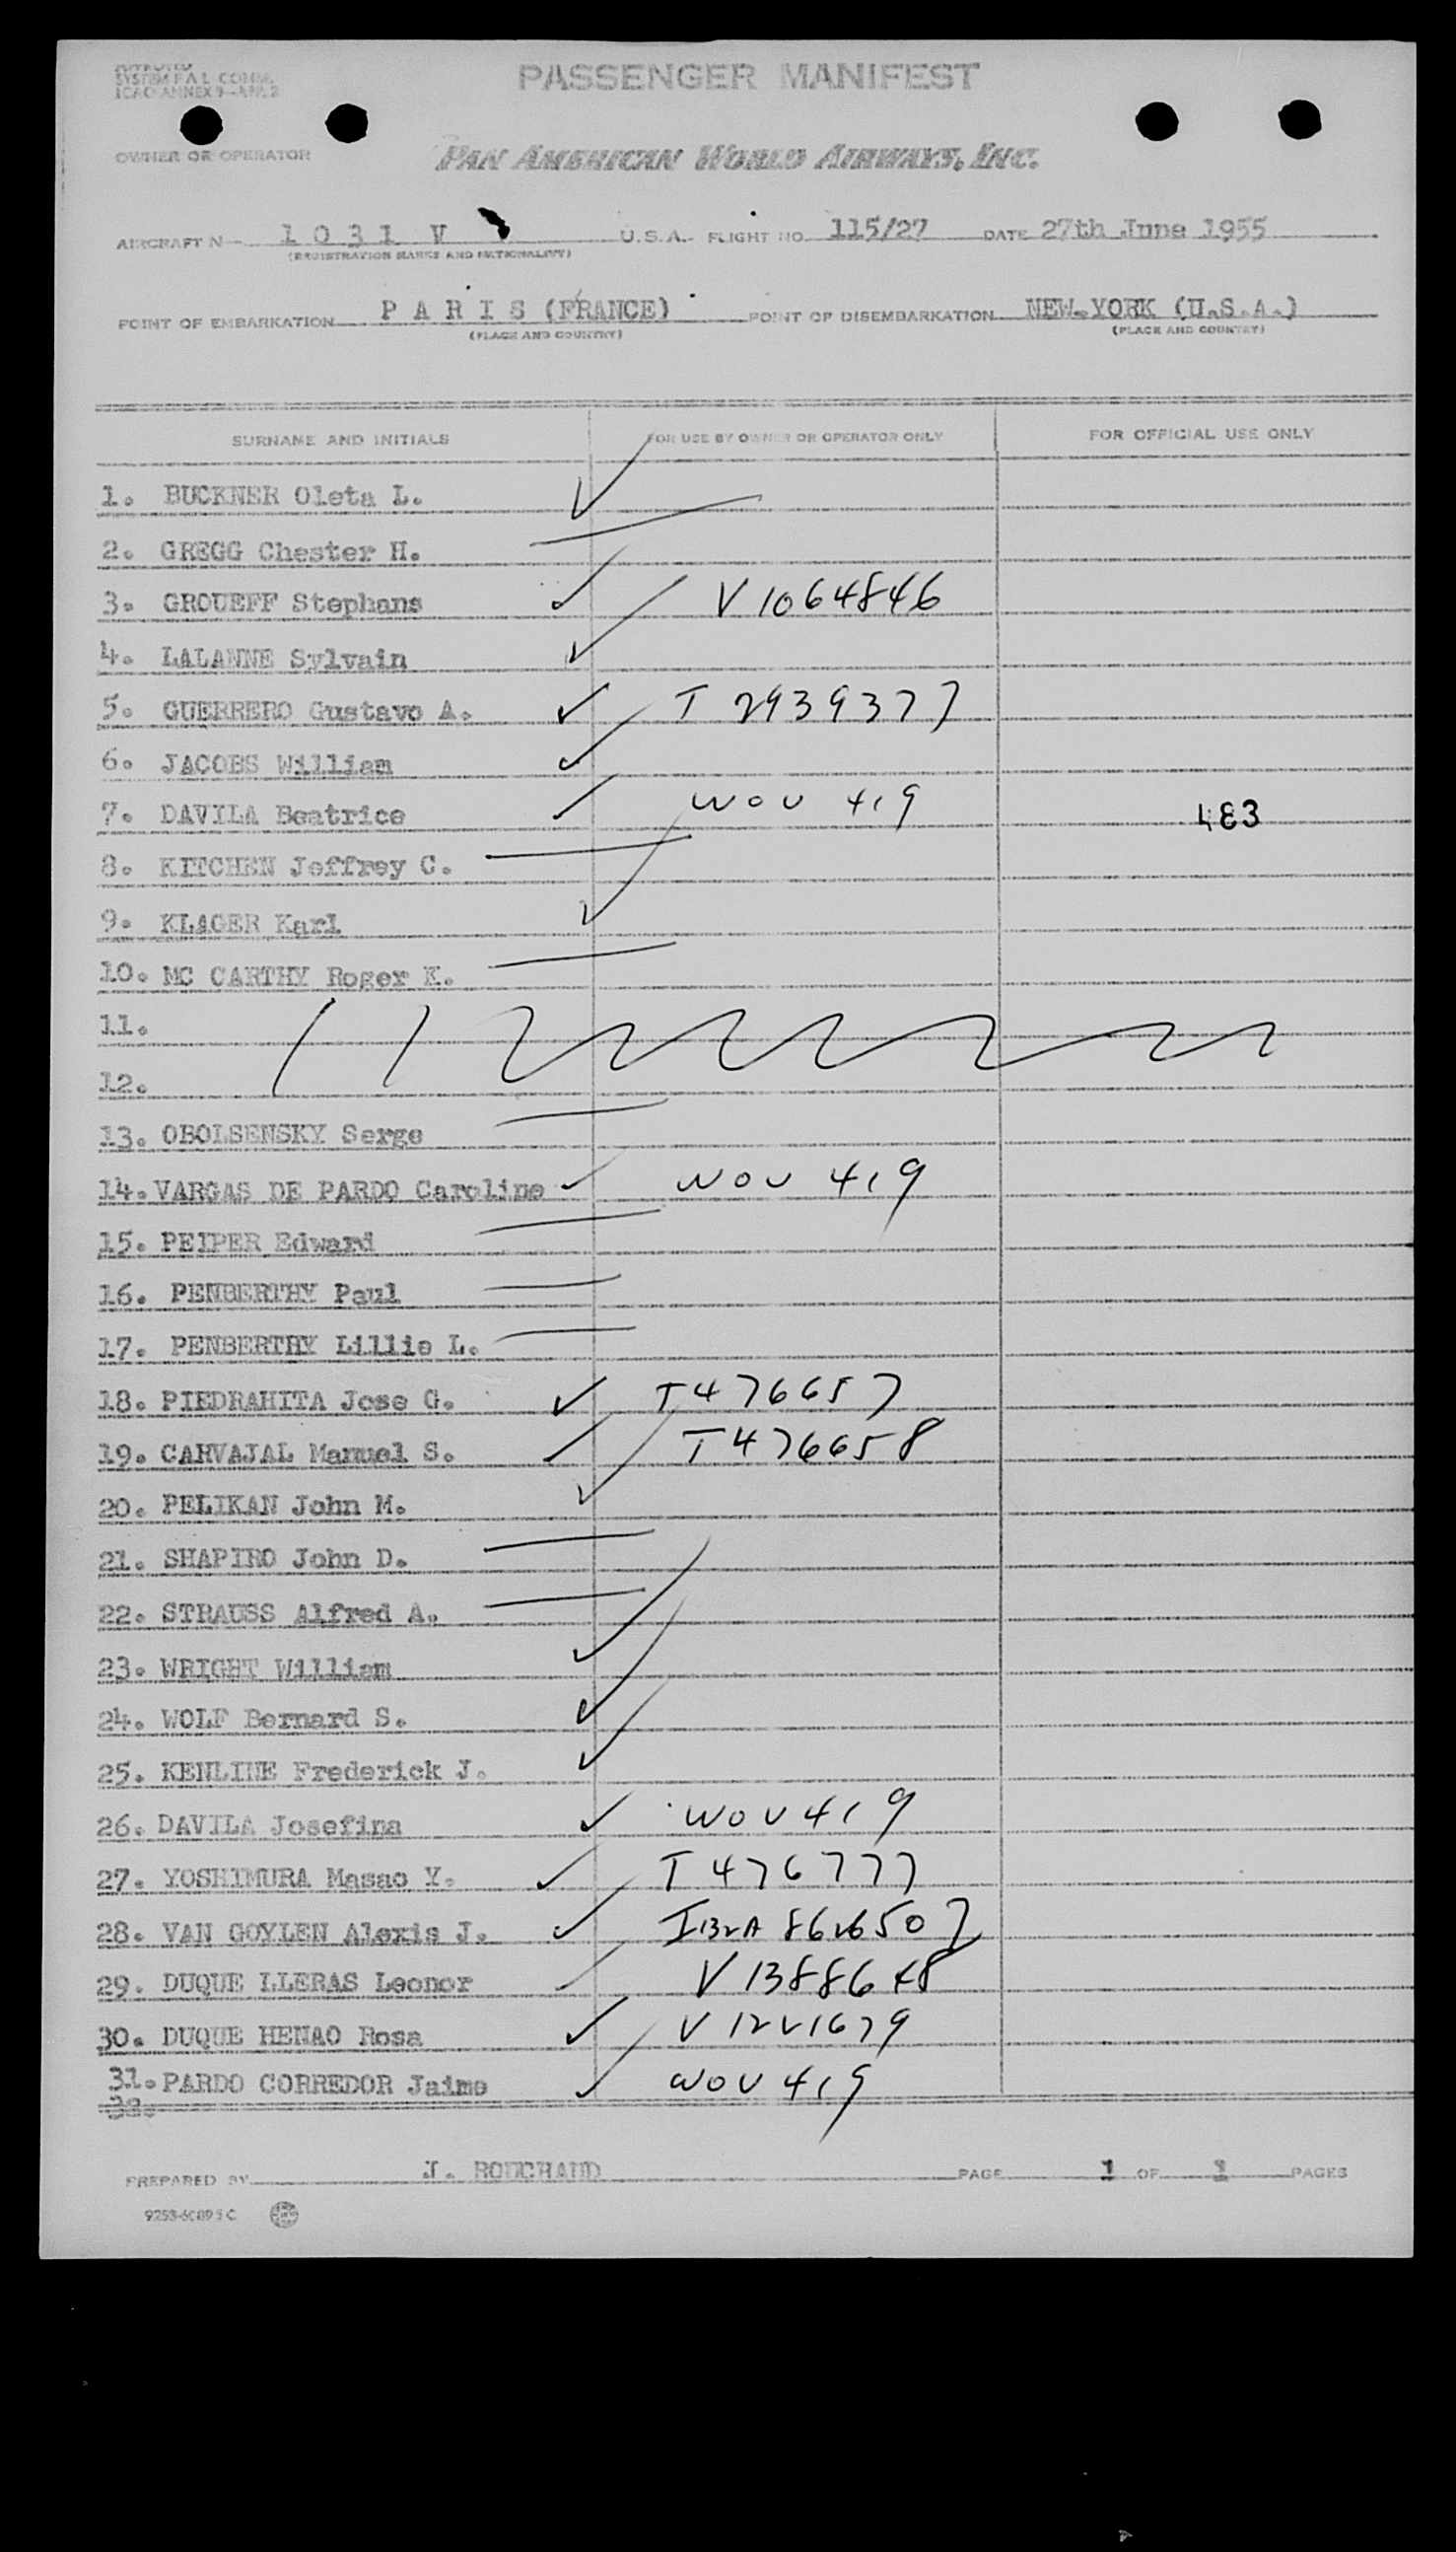 SYSTEM F A L COMM.
ICAO ANNEX 9—APP. 2
PASSENGER MANIFEST
OWNER OR OPERATOR PAN AMERICAN WORLD AIRWAYS, INC.
AIRCRAFT N— 1 0 3 1 V U.S.A. FLIGHT NO. 115/27 DATE 27th June 1955
(REGISTRATION MARKS AND NATIONALITY)
POINT OF EMBARKATION P A R I S (FRANCE) POINT OF DISEMBARKATION NEW.YORK (U.S.A.)
(PLACE AND COUNTRY) (PLACE AND COUNTRY)
SURNAME AND INITIALS FOR USE BY OWNER OR OPERATOR ONLY FOR OFFICIAL USE ONLY
1. BUCKNER Oleta L.
2. GREGG Chester H.
3. GROUEFF Stephans V1064846
4. LALANNE Sylvain
5. GUERRERO Gustavo A. T 2939377
6. JACOBS William
7. DAVILA Beatrice WOV 419 483
8. KITCHEN Jeffrey C.
9. KLAGER Karl
10. MC CARTHY Roger K.
11.
12.
13. OBOLSENSKY Serge
14. VARGAS DE PARDO Caroline WOV 419
15. PEIPER Edward
16. PENBERTHY Paul
17. PENBERTHY Lillie L.
18. PIEDRAHITA Jose G. T476657
19. CARVAJAL Manuel S. T476658
20. PELIKAN John M.
21. SHAPIRO John D.
22. STRAUSS Alfred A.
23. WRIGHT William
24. WOLF Bernard S.
25. KENLINE Frederick J.
26. DAVILA Josefina WOV419
27. YOSHIMURA Masao Y. T 476777
28. VAN GOYLEN Alexis J.
29. DUQUE LLERAS Leonor V1388648
30. DUQUE HENAO Rosa V1221679
31. PARDO CORREDOR Jaime WOV 419
32.
PREPARED BY J. ROUCHAUD PAGE 1 OF 1 PAGES